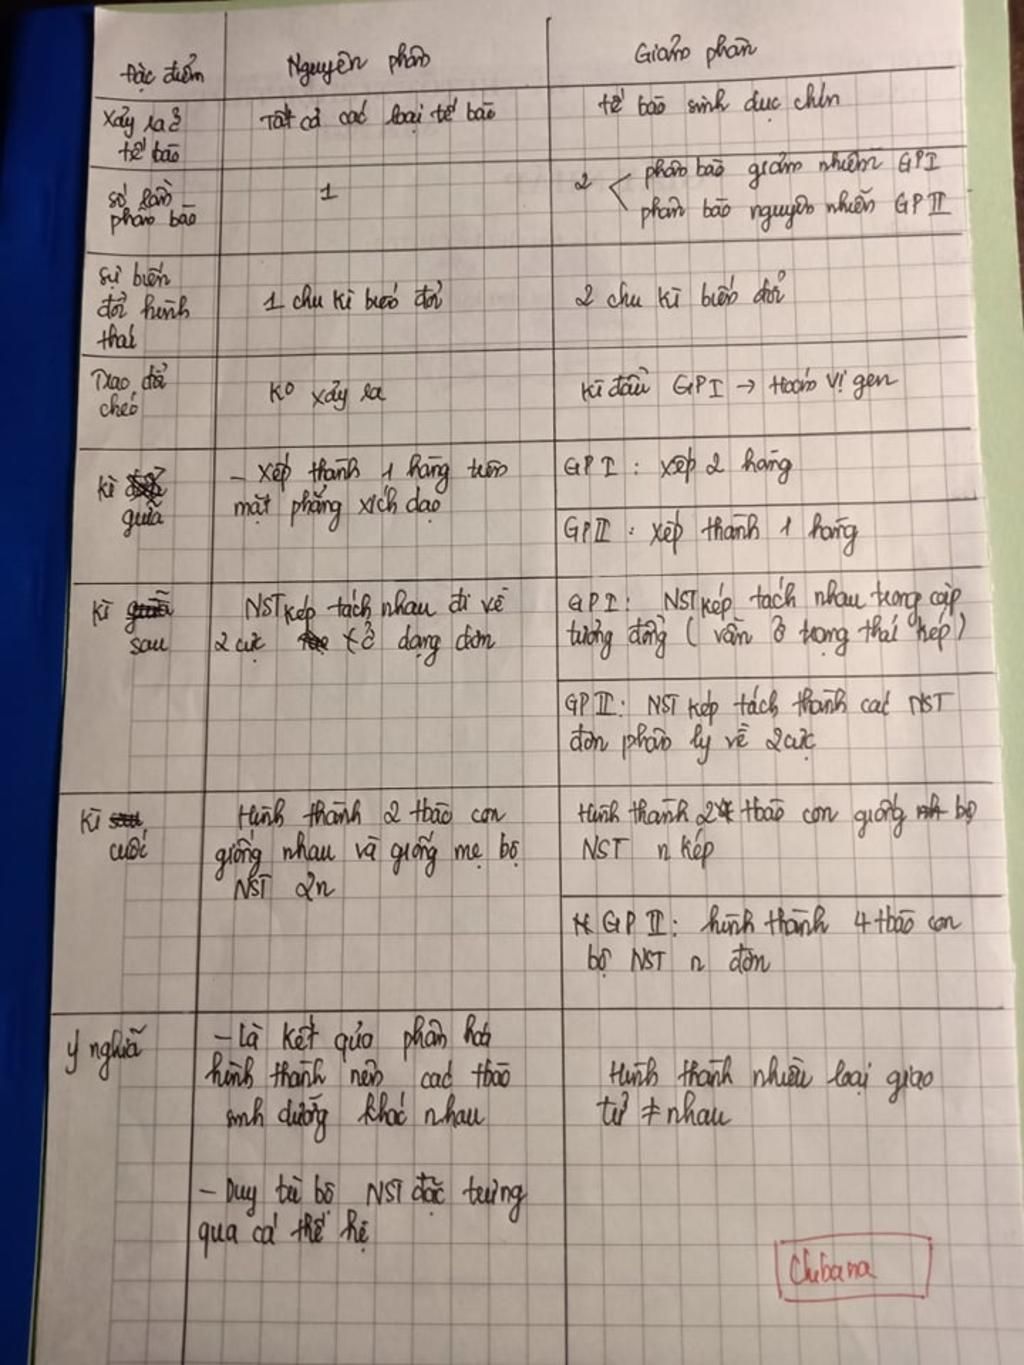 Đặc điểm
Nguyên phân
Giảm phân
Xảy ra ở
tế bào
Tất cả các loại tế bào
tế bào sinh dục chín
số lần
phân bào
1
2
phân bào giảm nhiễm GPI
phân bào nguyên nhiễm GPII
sự biến
đổi hình
thái
1 chu kì biến đổi
2 chu kì biến đổi
Trao đổi
chéo
Ko xảy ra
Kì đầu GPI → Hoán vị gen
Kì
giữa
- Xếp thành 1 hàng trên
mặt phẳng xích đạo
GPI : xếp 2 hàng
GPII : xếp thành 1 hàng
Kì
sau
NST kép tách nhau đi về
2 cực ở dạng đơn
GPI : NST kép tách nhau trong cặp
tương đồng ( vẫn ở trạng thái kép )
GPII : NST kép tách thành các NST
đơn phân ly về 2 cực
Kì
cuối
Hình thành 2 tbào con
giống nhau và giống mẹ bộ
NST 2n
Hình thành 2 tbào con giống bộ
NST n kép
GPII : hình thành 4 tbào con
bộ NST n đơn
Ý nghĩa
- Là kết quả phân hoá
hình thành nên các tbào
sinh dưỡng khác nhau
- Duy trì bộ NST đặc trưng
qua cá thế hệ
Hình thành nhiều loại giao
tử ≠ nhau
Chibana